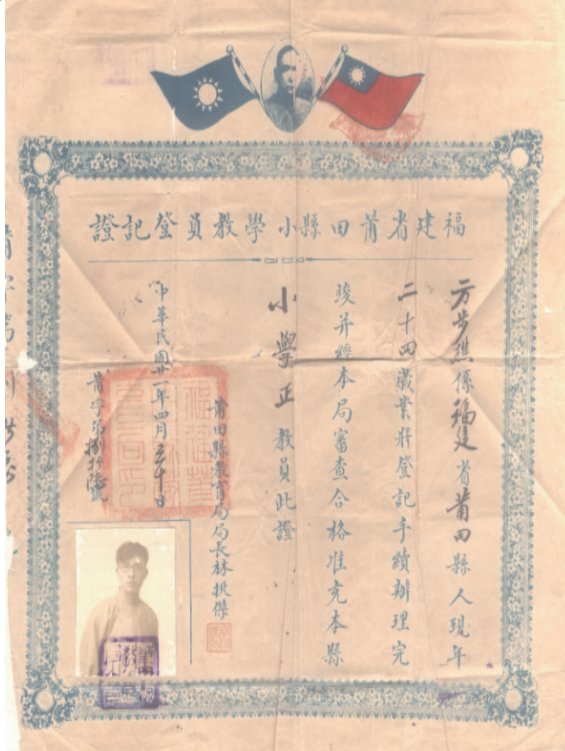 福建省莆田縣小學教員登記證
方步樵係福建省莆田縣人現年
二十四歲業將登記手續辦理完
竣并經本局審查合格准充本縣
小學正教員此證
莆田縣教育局局長林振傑
中華民國廿一年四月三十日
莆字第號